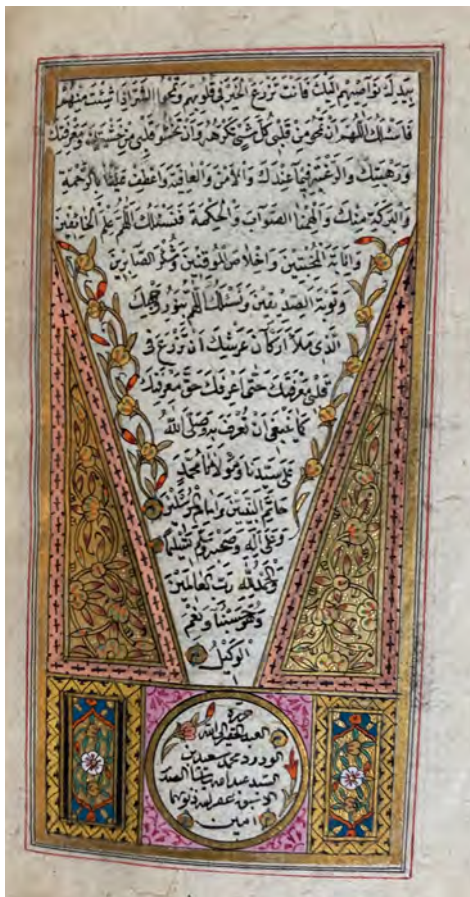 بيدك نواصيهم اليك فانت تزرع الخير في قلوبهم وتمحوا الشر اذا شئت منهم
فاسئلك اللهم ان تمحو من قلبي كل شيء تكرهه وان تحشو قلبي من خشيتك ومعرفتك
ورهبتك والرغبة فيما عندك والامن والعافية واعطف علينا بالرحمة
والبركة منك والهمنا الصواب والحكمة فنسئلك اللهم علم الخائفين
وانابة المخبتين واخلاص الموقنين وشكر الصابرين
وتوبة الصديقين ونسئلك اللهم بنور وجهك
الذي ملأ اركان عرشك ان تزرع في
قلبي معرفتك حتى اعرفك حق معرفتك
كما ينبغي ان تعرف به وصلى الله
على سيدنا ومولانا محمد
خاتم النبيين وامام المرسلين
وعلى آله وصحبه وسلم تسليما
والحمد لله رب العالمين
وهو حسبنا ونعم
الوكيل
حرره
العبد الفقير الى الله
الودود محمد بن
السيد عبد الله السيد
غفر الله ذنوبهما
امين